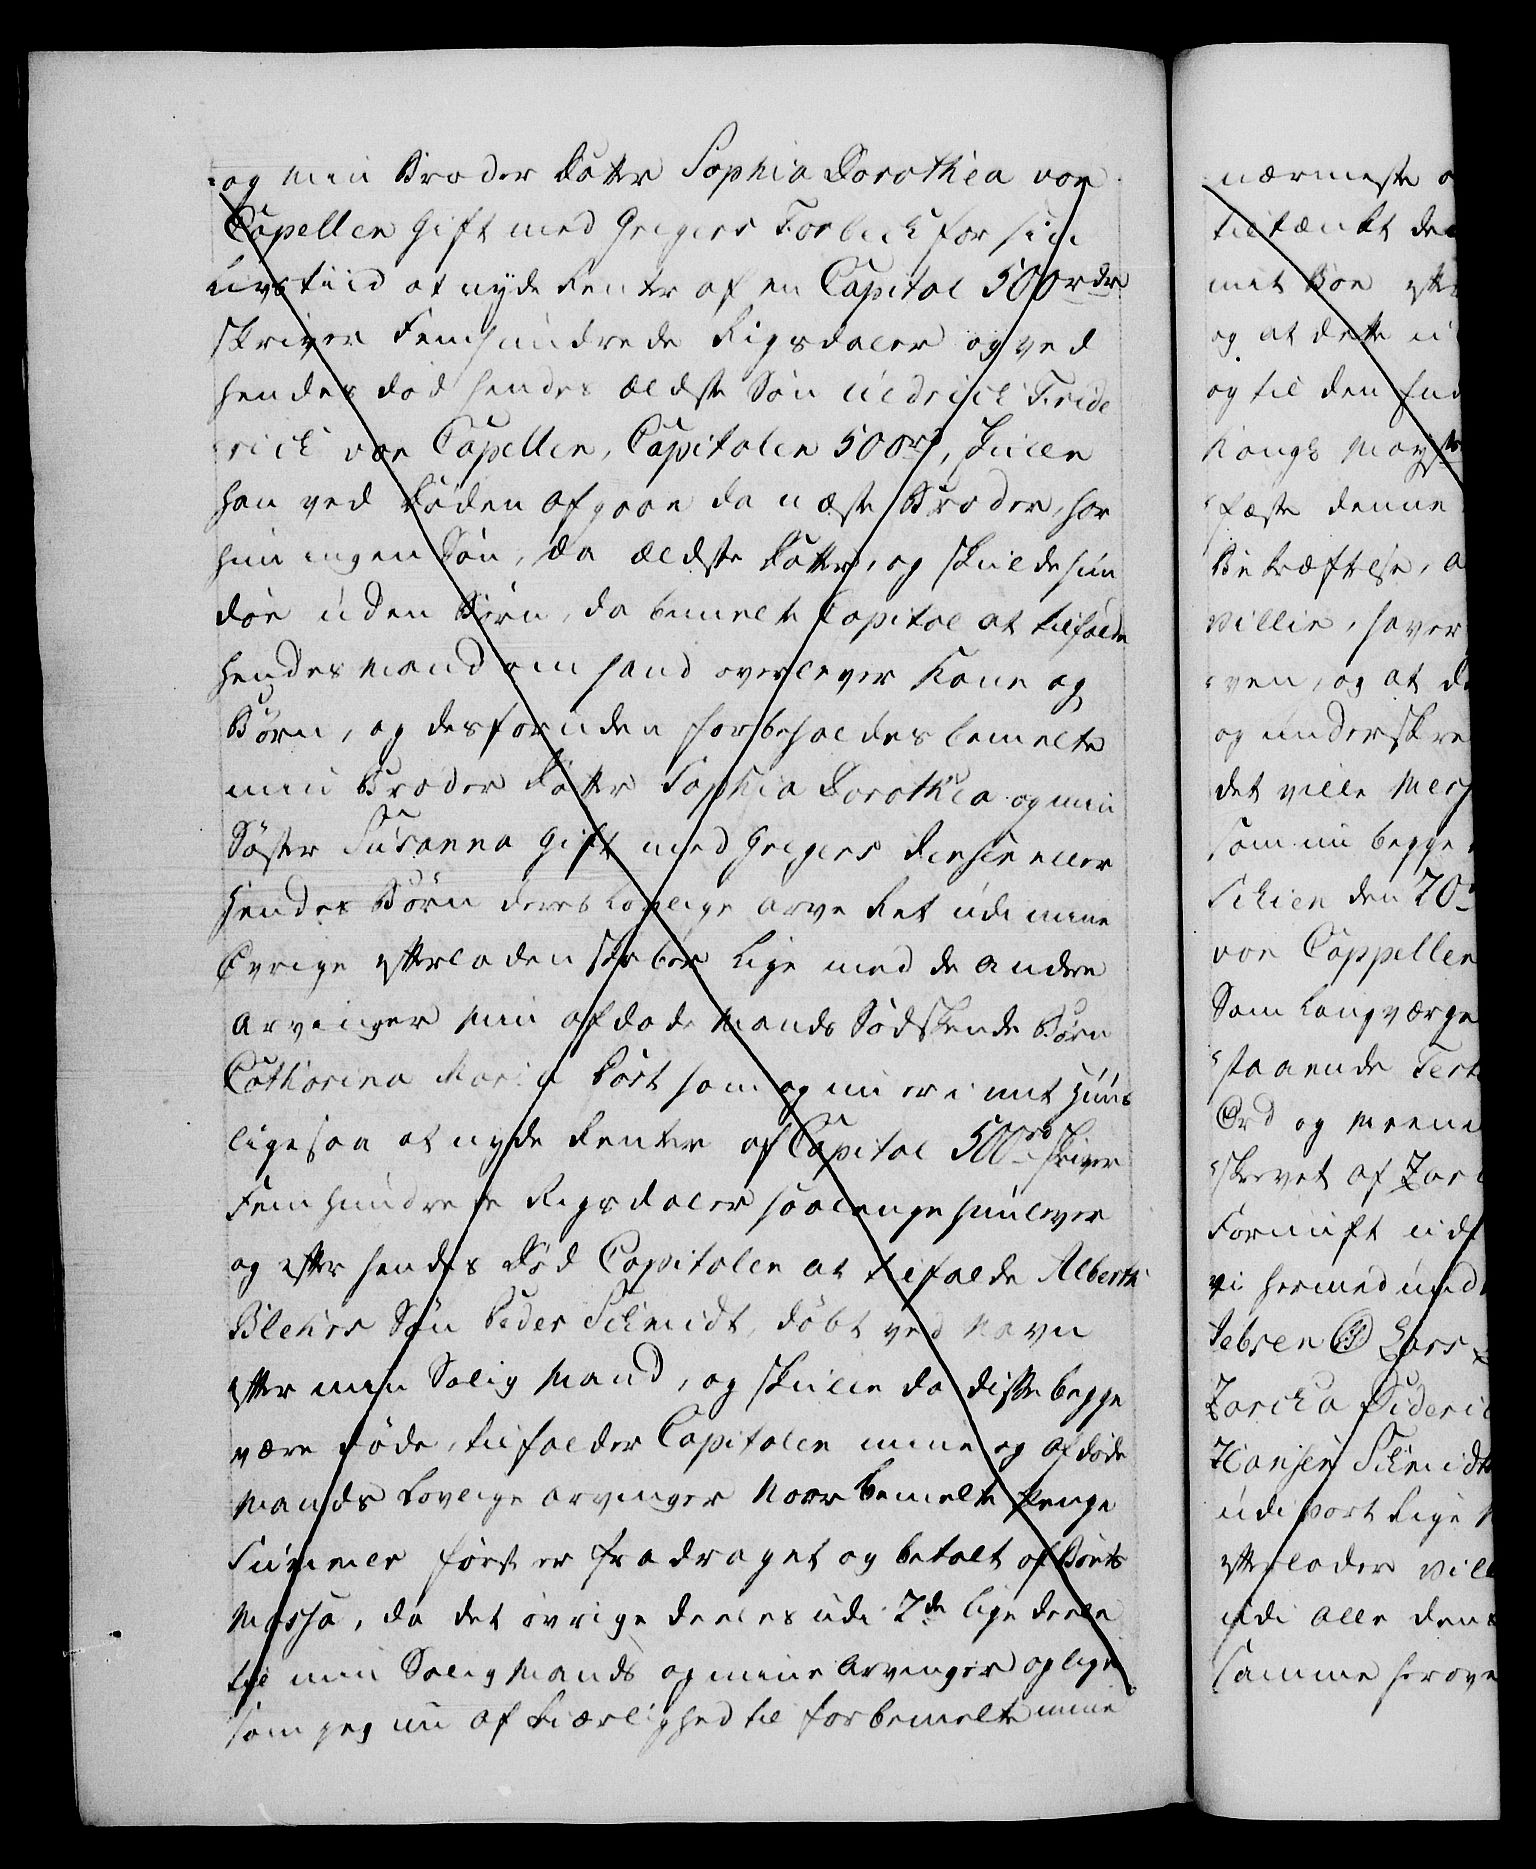 og min Broder Datter Sophia Dorothea von
Capellen gift med Gregers Forbech for sin
Livs tiid at nyde Renter af en Capital 500rdr
skriver Femhundrede Rigsdaler og ved
hendes død hendes ældste Søn Uldrich Fride
rich von Capellen, Capitalen 500rd, skulle
han ved døden afgaae da næste Broder, har
hun ingen Søn, da ældste Datter, og skulde hun
døe uden Børn, da bemelte Capital at tilfalde
hendes Mand om hand overlever Kone og
Børn, og desforuden forbeholdes bemelte
min Broder Datter Sophia Dorothea og min
Søster Susanna gift med Gregers Jensen eller
hendes Børn deres Lovlige arve Ret udi mine
Øvrige efterladenskaber lige med de andre
Arvinger min afdøde Mands Södskende Børn
Catharina Maria som og nu er i mit Huus
ligesaa at nyde Renter af Capital 500rd skriver
Femhundrede Rigsdaler saalenge hun lever
og efter hendes Død Capitalen at tilfalde Alberth
Blehrs Søn Peder Schmidt, døbt ved Navn
efter min Salig Mand, og skulle da disse begge
være døde, tilfalder Capitalen mine og afdøde
Mands Lovlige arvinger Naar bemelte Penge
Summer først er fradraget og betalt af Boets
Massa, da det øvrige deeles udi 2de lige deele
til min Salig Mands og mine Arvinger og lige
som jeg nu af Kiærlighed til forbemelte mine
nærmeste
tiltænkt
mit Boe
og at dette
og til den
Kongl Mayts
fæste denne
Bekræftelse,
Villie, haver
ven, og at
og underskre
det ville
som nu begge
Schien den 20
von Cappellen
Som Laugværge
staaende
Ord og Meeni
skrevet af
Fornuft
vi hermed
Jebsen Lars
DidericH
Hansen Schmidt
udi vort Rige
efterlader
udi alle
samme